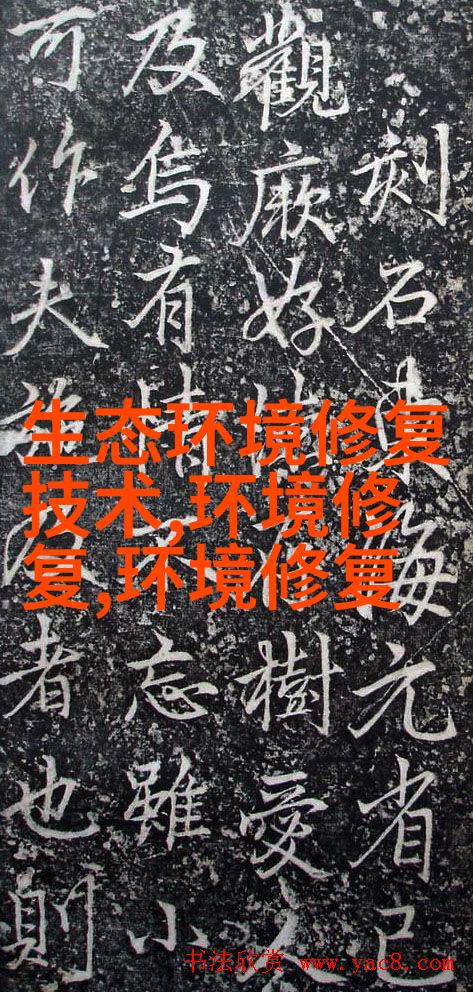 刻石東海元省己
觀厥好樹愛
及烏有情忘雖小
可作夫者也則
生态环境修复
技术,环境修
复,环境修复
书法欣赏 www.yac8.com